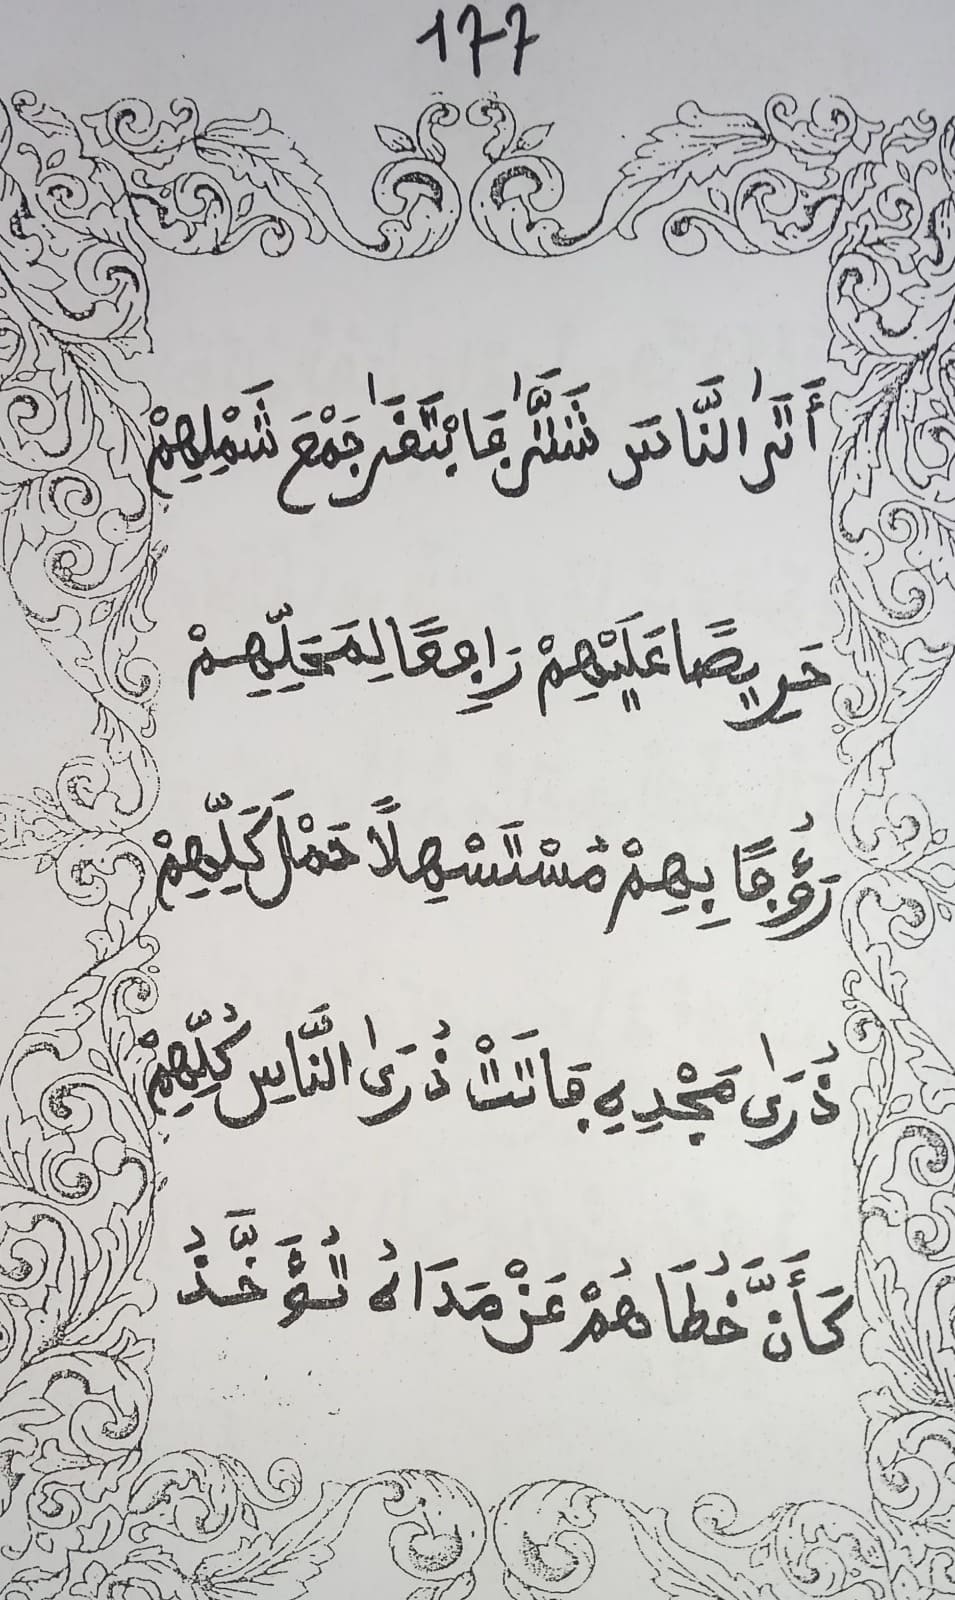 177
أَتَى النَّاسَ شَتَّى فَابْتَغَى جَمْعَ شَمْلِهِمْ
حَرِيصًا عَلَيْهِمْ رَاجِعًا لِمَحَلِّهِمْ
رَؤُفًا بِهِمْ مُسْتَسْهِلًا حَمْلَ كَلِّهِمْ
ذُرَى مَجْدِهِ فَاتَتْ ذُرَى النَّاسِ كُلِّهِمْ
كَأَنَّ خُطَاهُمْ عَنْ مَدَاهُ تُؤَخَّذُ